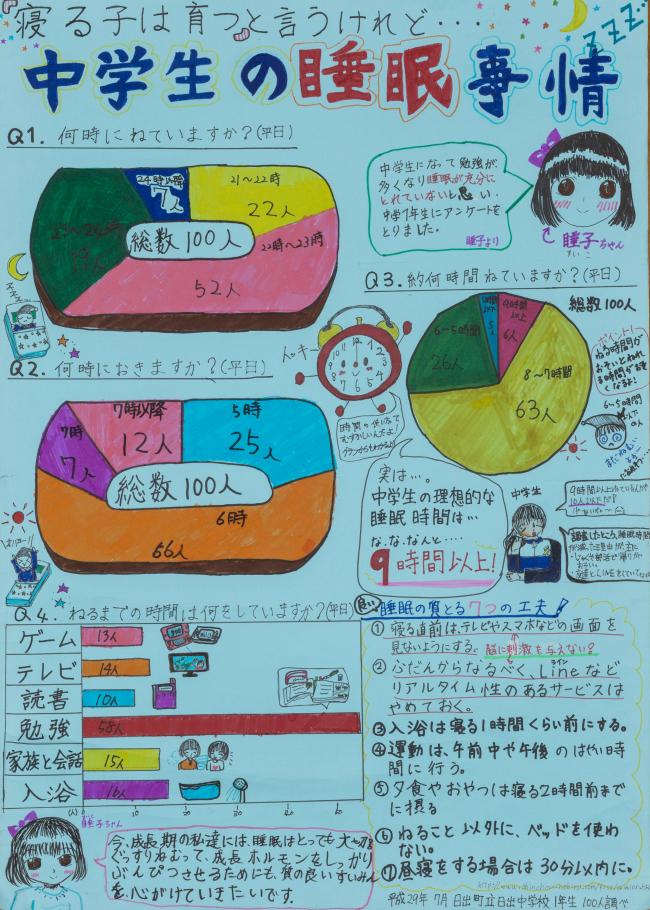 寝る子は育つと言うけれど・・・・
zzz...
中学生の睡眠事情
Q1. 何時にねていますか?(平日)
24時以降
7人
21〜22時
22人
22時〜23時
52人
総数100人
中学生になって勉強が
多くなり睡眠が充分に
とれていないと思い、
中学1年生にアンケートを
とりました。
睡子より
睡子ちゃん
Q3.約何時間ねていますか?(平日)
総数100人
5人
9時間以上
6人
6〜5時間
26人
8〜7時間
63人
ポイント!
ねる時間が
おそいとねれ
る時間が短
くなるよ!
6〜5時間
Q2. 何時におきますか?(平日)
7時以降
12人
5時
25人
7時
7人
総数100人
6時
66人
実は…。
中学生の理想的な
睡眠時間は…
な.な.なんと・・・・
9時間以上!
中学生
Q4. ねるまでの時間は何をしていますか?(平日)
ゲーム 13人
テレビ 14人
読書 10人
勉強 58人
家族と会話 15人
入浴 16人
(人) 10 20 30 40 50 60
良い睡眠の質とる7つの工夫!
①寝る直前は、テレビやスマホなどの画面を
見ないようにする。脳に刺激を与えない?
②ふだんからなるべく、Lineなど
ライン
リアルタイム性のあるサービスは
やめておく。
③入浴は寝る1時間くらい前にする。
④運動は、午前中や午後のはやい時
間に行う。
⑤夕食やおやつは寝る2時間前まで
に摂る
⑥ねること以外に、ベッドを使わ
ない。
⑦昼寝をする場合は30分以内に。
睡子ちゃん
今、成長期の私達には、睡眠はとっても大切。
ぐっすりねむって、成長ホルモンをしっかり
ぶんぴつさせるためにも、質の良いすいみん
を、心がけていきたいです。
平成29年 7月 日出町立日出中学校1年生 100人調べ